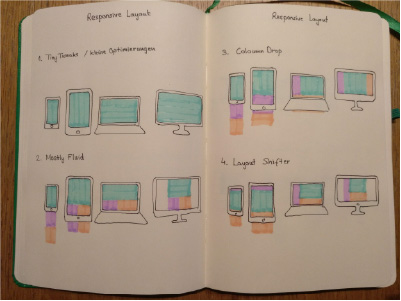 Responsive Layout
1. Tiny Tweaks / kleine Optimierungen
2. Mostly Fluid
Responsive Layout
3. Column Drop
4. Layout Shifter